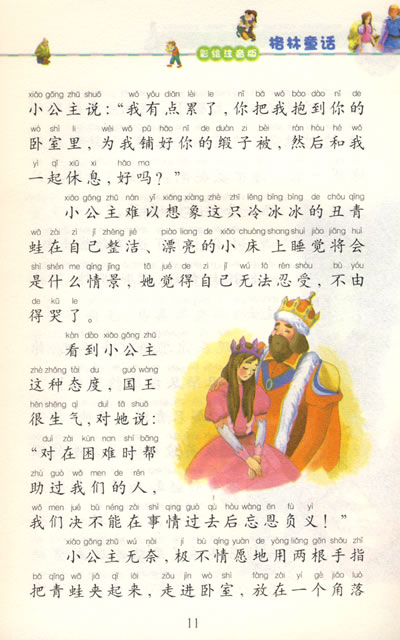 格林童话
彩绘注音版
xiǎo gōng zhǔ shuō wǒ yǒu diǎn lèi le nǐ bǎ wǒ bào dào nǐ de
小公主说：“我有点累了，你把我抱到你的
wò shì lǐ wèi wǒ pū hǎo nǐ de duàn zi bèi rán hòu hé wǒ
卧室里，为我铺好你的缎子被，然后和我
yì qǐ xiū xi hǎo ma
一起休息，好吗？”
xiǎo gōng zhǔ nán yǐ xiǎng xiàng zhè zhī lěng bīng bīng de chǒu qīng
小公主难以想象这只冷冰冰的丑青
wā zài zì jǐ zhěng jié piào liang de xiǎo chuáng shang shuì jiào jiāng huì
蛙在自己整洁、漂亮的小床上睡觉将会
shì shén me qíng jǐng tā jué de zì jǐ wú fǎ rěn shòu bù yóu
是什么情景，她觉得自己无法忍受，不由
de kū le
得哭了。
kàn dào xiǎo gōng zhǔ
看到小公主
zhè zhǒng tài du guó wáng
这种态度，国王
hěn shēng qì duì tā shuō
很生气，对她说：
duì zài kùn nan shí bāng
“对在困难时帮
zhù guò wǒ men de rén
助过我们的人，
wǒ men jué bù néng zài shì qing guò qù hòu wàng ēn fù yì
我们决不能在事情过去后忘恩负义！”
xiǎo gōng zhǔ wú nài jí bù qíng yuàn de yòng liǎng gēn shǒu zhǐ
小公主无奈，极不情愿地用两根手指
bǎ qīng wā jiā qǐ lái zǒu jìn wò shì fàng zài yí gè jiǎo luò
把青蛙夹起来，走进卧室，放在一个角落
11